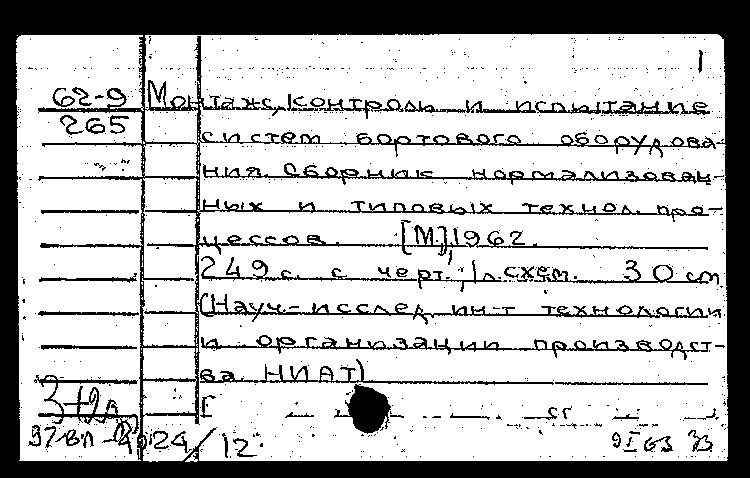 1
62-9 Монтаж, контроль и испытание
265
систем бортового оборудова-
ния. Сборник нормализован-
ных и типовых технол. про-
цессов. [М], 1962.
249 с. с черт.; 1 л. схем. 30 см
(Науч.-исслед. ин-т технологии
и организации производст-
ва НИАТ)
24/12
9 I 63